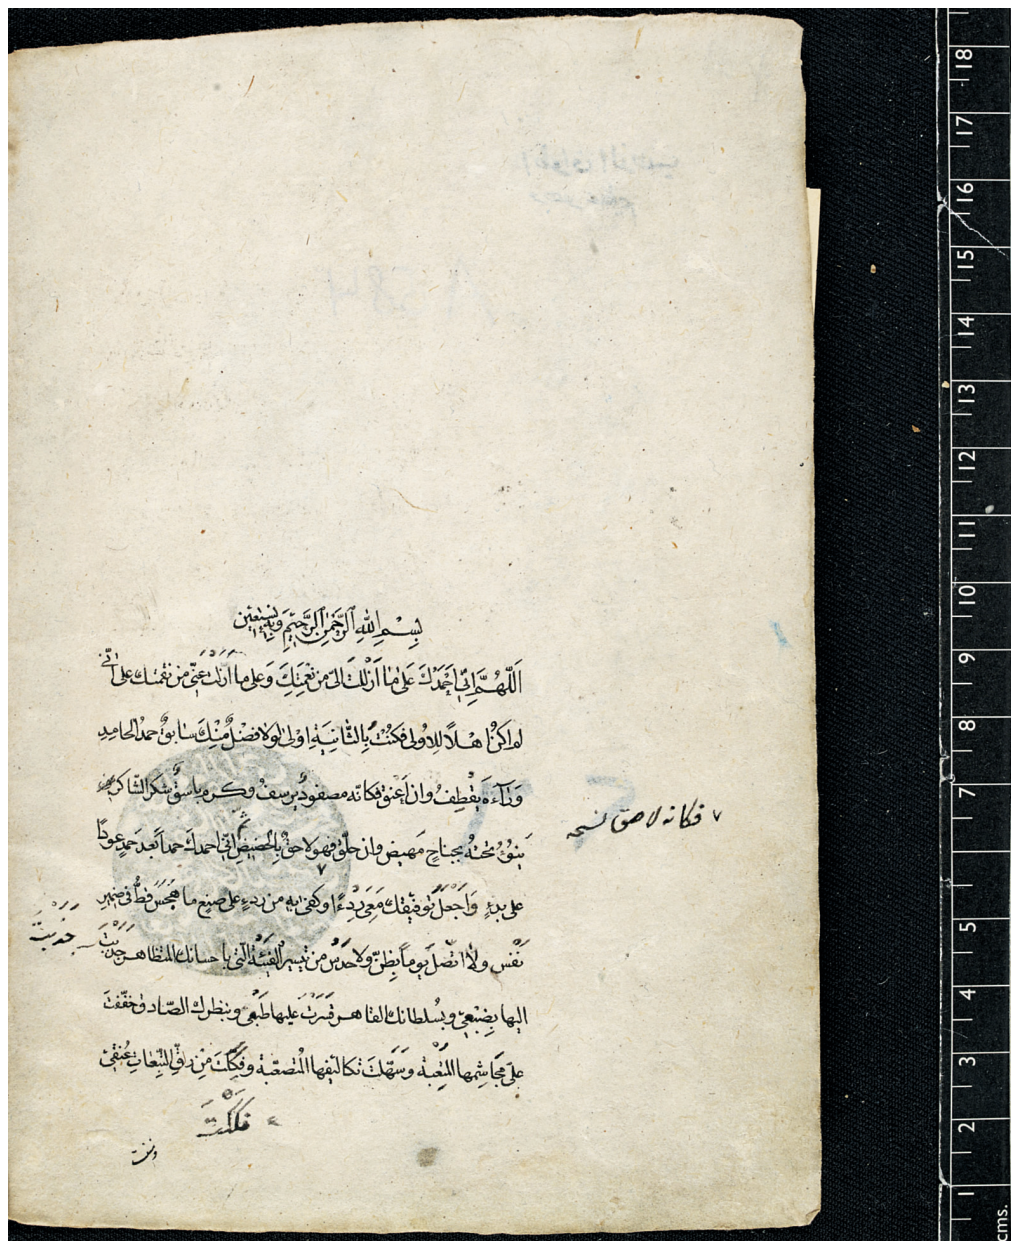 بِسْمِ اللهِ الرَّحْمٰنِ الرَّحِيْمِ وَبِهٖ نَسْتَعِيْن
اَللّٰهُمَّ اِنِّي اَحْمَدُكَ عَلٰى مَا اَزْلَلْتَ اليّ من نِعْمَتِكَ وَعَلٰى ما اَزَلْتَ عَنّي من نقمتك على انّي
لم اكن اهلًا للاولى فكنْتُ بِالثَّانِيَةِ اوْلى لولا فضلٌ مِنْكَ سابقٌ حمدُ الحامدِ
وَرَآءَهٗ يَقْطِفُ وان اَعْنَقَ فكانّه مصفودٌ يرسفُ وكرم باسقٌ شكرُ الشّاكر
يَنُوْءُ تحتهٗ بجناحٍ مَهيض وان حلّق فهو لاحقٌ بِالحَضِيضِ ثم انّي احمدك حمداً بعد حمدٍ عودًا
على بدءٍ وَاَجْعَلُ تَوفيقك مَعِيَ رِدْءًا وكفى بهٖ من ردءٍ على صنيع ما هَجَسَ قطُّ في ضمير
نَفْس ولا اتّصلَ يوماً بظنّ ولا حَدْس من تيسير الفَيْئَة الّتي باحسانك المتظاهر حَدَبْتَ
اليها بِضَبْعي وبسُلطانك القاهر قَسَرْتَ عليها طَبْعي وبنظرك الصّادق خفّفتَ
عليّ مَجَاشِمها المُتْعِبَة وَسَهَّلتَ تكاليفها المُتصعّبة وفَكَّكْتَ مِن رِقّ التَّبِعَاتِ عُنقي
٧ فكانه لاحق نسخه
فككت